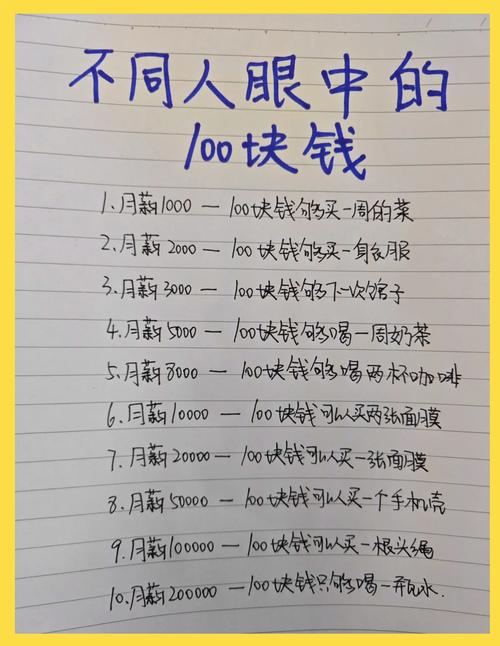 不同人眼中的
100块钱
1.月薪1000 — 100块钱够买一周的菜
2.月薪2000 — 100块钱够买一身衣服
3.月薪3000 — 100块钱够下一次馆子
4.月薪5000 — 100块钱够喝一周奶茶
5.月薪8000 — 100块钱够喝两杯咖啡
6.月薪10000 — 100块钱可以买两张面膜
7.月薪20000 — 100块钱可以买一张面膜
8.月薪50000 — 100块钱可以买一个手机壳
9.月薪100000 — 100块钱可以买一根头绳
10.月薪200000 — 100块钱只够喝一瓶水.